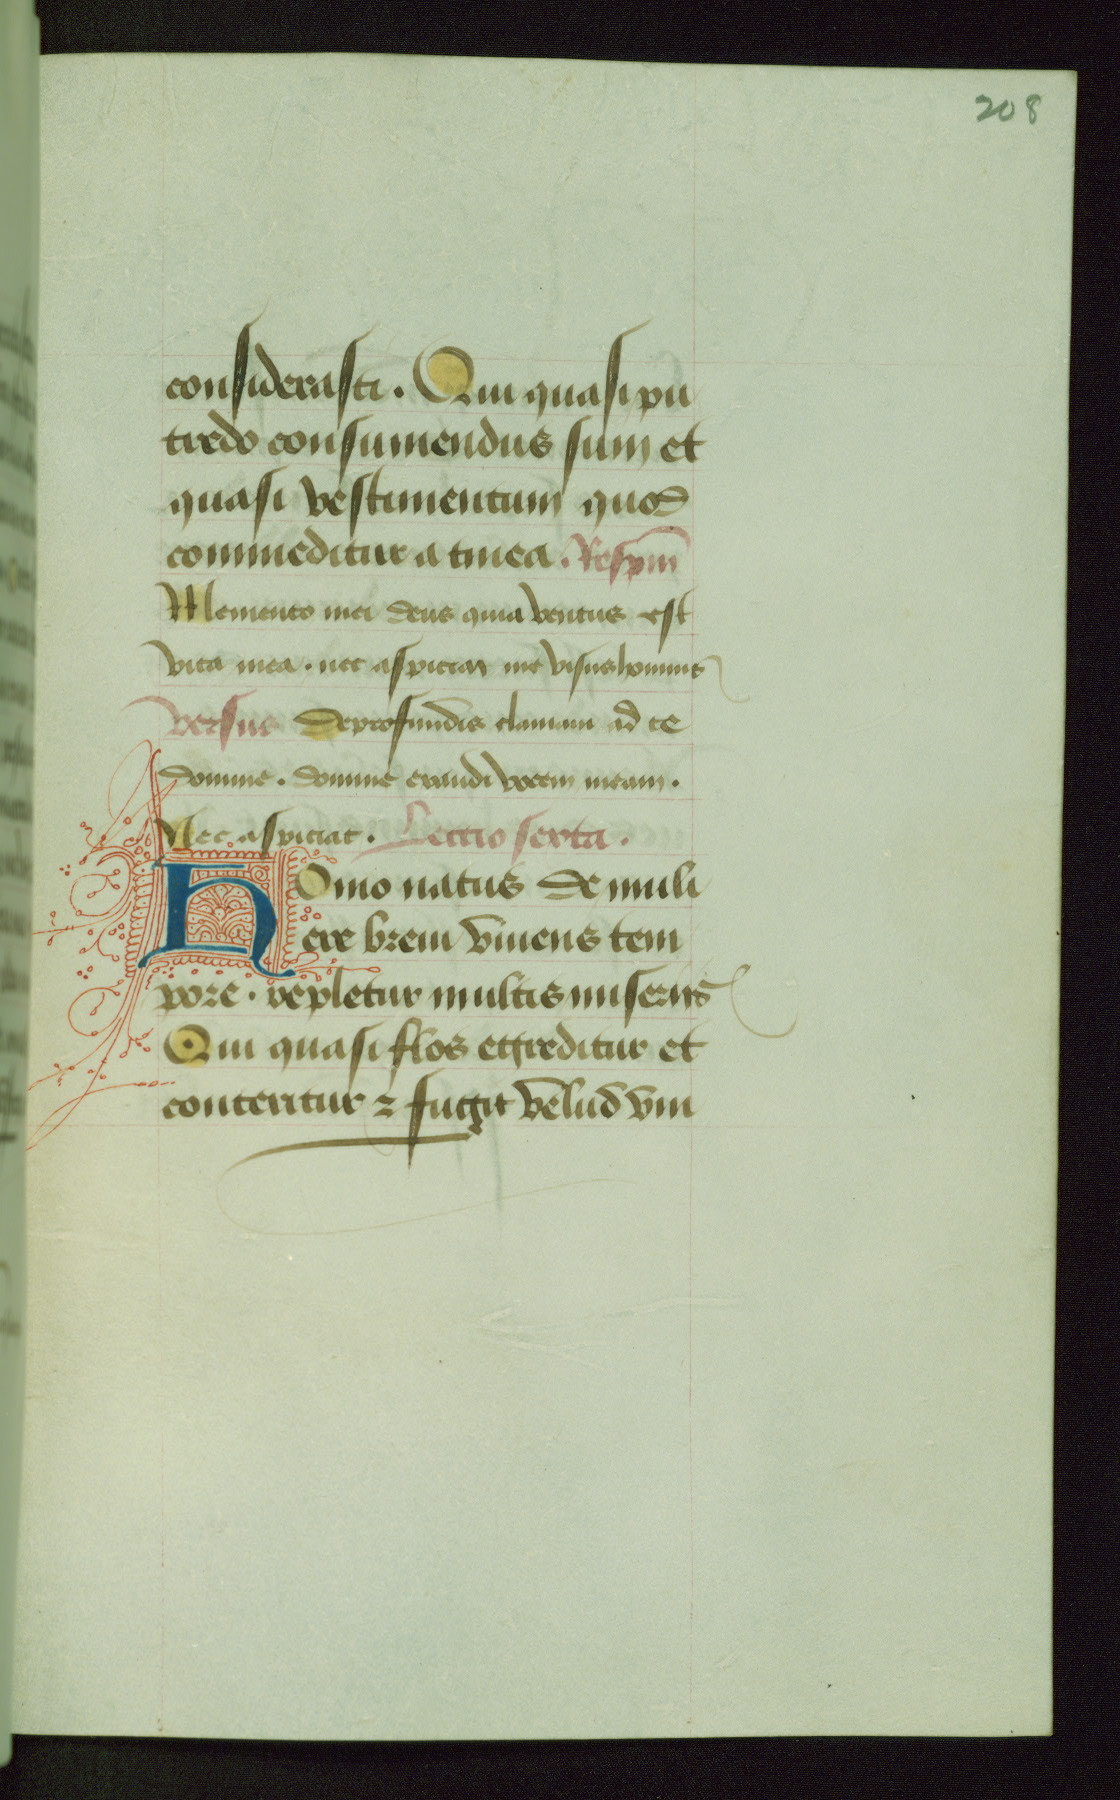 208
considerasti. Qui quasi pu
tredo consumendus sum et
quasi vestimentum quod
commeditur a tinea. Respm̄
Memento mei deus quia ventus est
vita mea. nec aspiciat me visus hominis
Versus De profundis clamavi ad te
domine. domine exaudi vocem meam.
Nec aspiciat. Lectio sexta.
HOmo natus de muli
ere brevi vivens tem
pore. repletur multis miseriis
Qui quasi flos egreditur et
conteritur ⁊ fugit velud vm